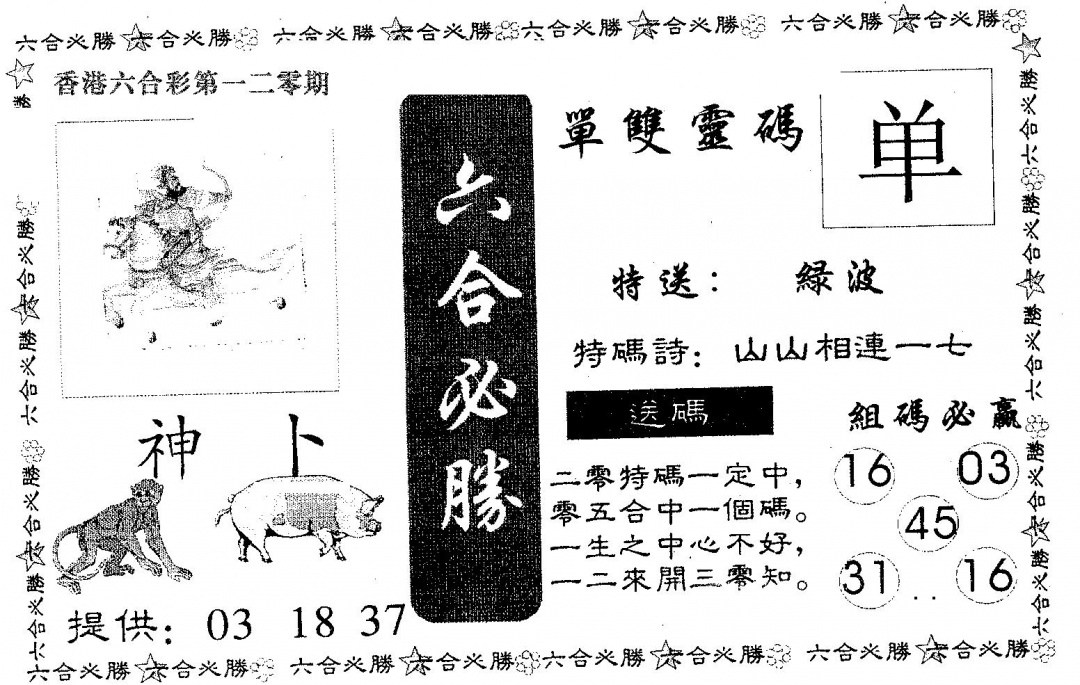 六合必勝 六合必勝 六合必勝 六合必勝 六合必勝 六合必勝 六合必勝 六合必勝
香港六合彩第一二零期
六合必勝
單雙靈碼
单
特送： 緑波
特碼詩：山山相連一七
送碼
二零特碼一定中，
零五合中一個碼。
一生之中心不好，
一二來開三零知。
組碼必贏
16 03
45
31 .. 16
神 卜
提供：03 18 37
勝 六合必勝 六合必勝 六合必勝 六合必勝
六合必勝 六合必勝 六合必勝 六合必勝 六合必勝
六合必勝 六合必勝 六合必勝 六合必勝 六合必勝 六合必勝 六合必勝 六合必勝